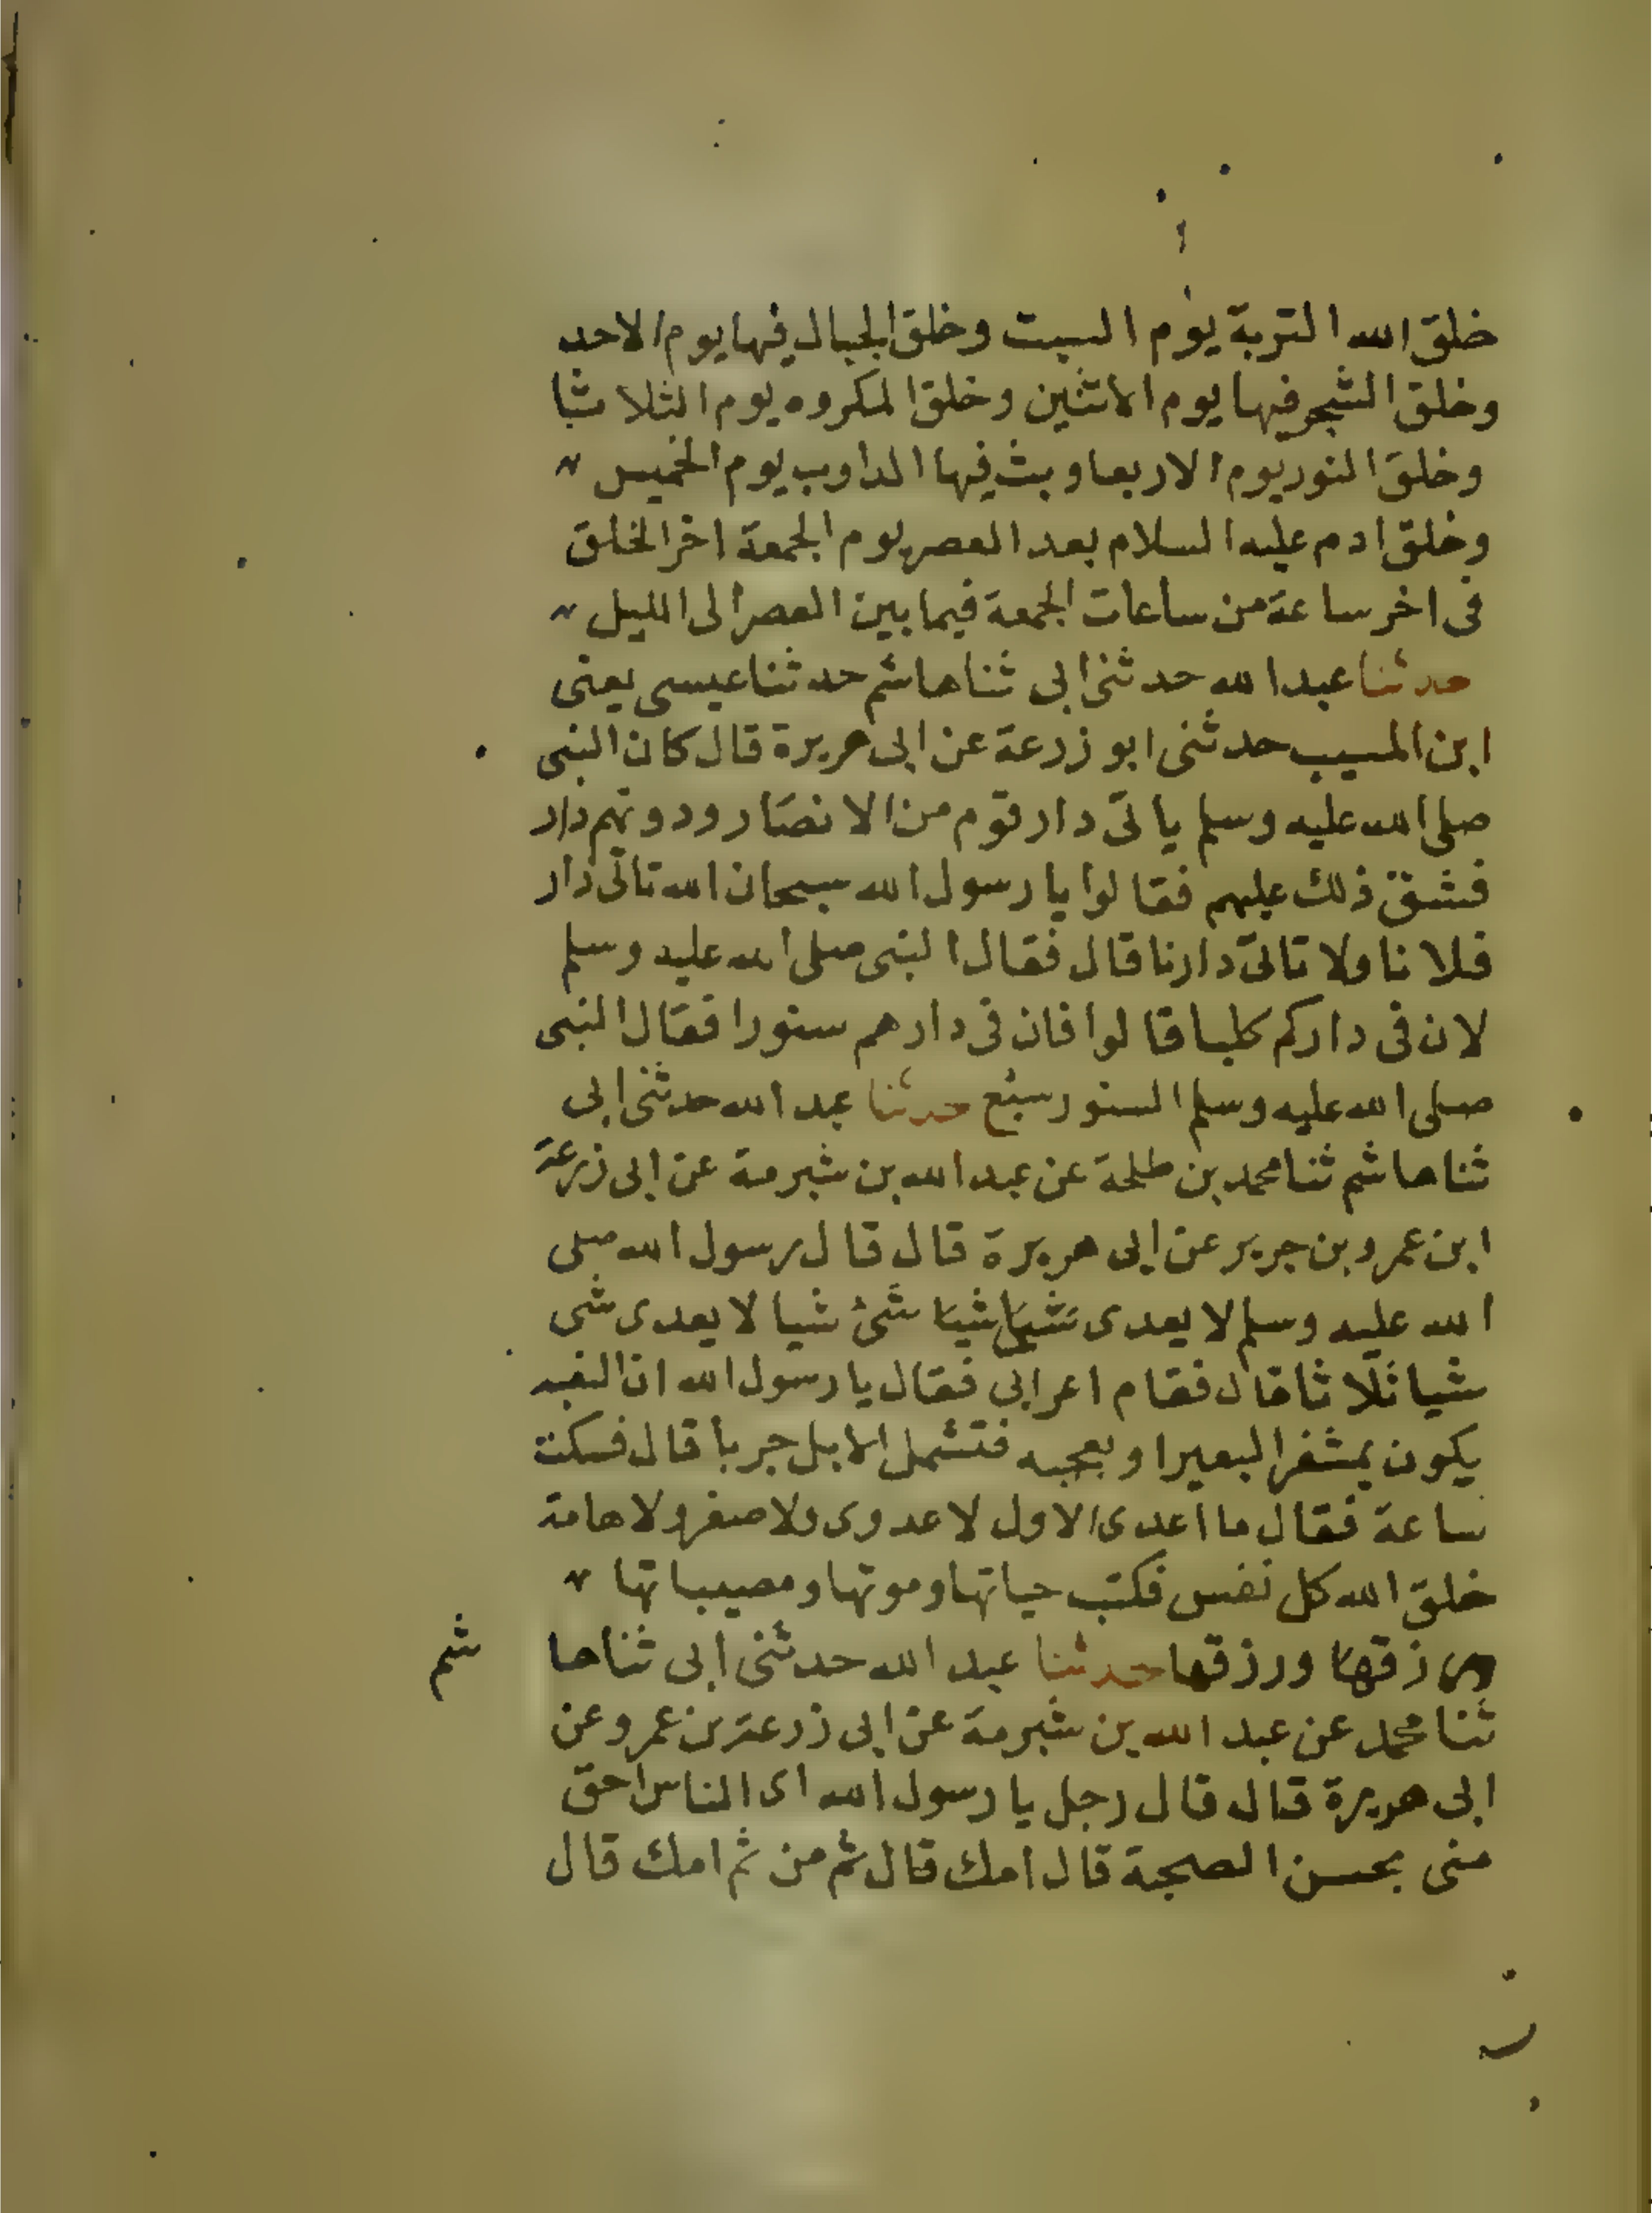 خلق الله التربة يوم السبت وخلق الجبال فيها يوم الاحد
وخلق الشجر فيها يوم الاثنين وخلق المكروه يوم الثلاثا
وخلق النور يوم الاربعا وبث فيها الداوب يوم الخميس
وخلق ادم عليه السلام بعد العصر يوم الجمعة اخر الخلق
فى اخر ساعة من ساعات الجمعة فيما بين العصر الى الليل
حدثنا عبد الله حدثنى ابى ثنا هاشم حدثنا عيسى يعنى
ابن المسيب حدثنى ابو زرعة عن ابى هريرة قال كان النبى
صلى الله عليه وسلم ياتى دار قوم من الانصار ودونهم دار
فشق ذلك عليهم فقالوا يا رسول الله سبحان الله تاتى دار
فلانا ولا تاتى دارنا قال فقال النبى صلى الله عليه وسلم
لان فى داركم كلبا قالوا فان فى دارهم سنورا فقال النبى
صلى الله عليه وسلم السنور سبع حدثنا عبد الله حدثنى ابى
ثنا هاشم ثنا محمد بن طلحة عن عبد الله بن شبرمة عن ابى زرعة
ابن عمرو بن جرير عن ابى هريرة قال قال رسول الله صلى
الله عليه وسلم لا يعدى شيا شيا شئ شيا لا يعدى شى
شيا ثلاثا قال فقام اعرابى فقال يا رسول الله ان النقبه
يكون بمشفر البعير او بعجبه فتشمل الابل جربا قال فسكت
ساعة فقال ما اعدى الاول لا عدوى ولا صفر ولا هامة
خلق الله كل نفس فكتب حياتها وموتها ومصيباتها
زقها ورزقها حدثنا عبد الله حدثنى ابى ثنا ها شم
ثنا محمد عن عبد الله بن شبرمة عن ابى زرعة بن عمرو عن
ابى هريرة قال قال رجل يا رسول الله اى الناس احق
منى بحسن الصحبة قال امك قال ثم من ثم امك قال